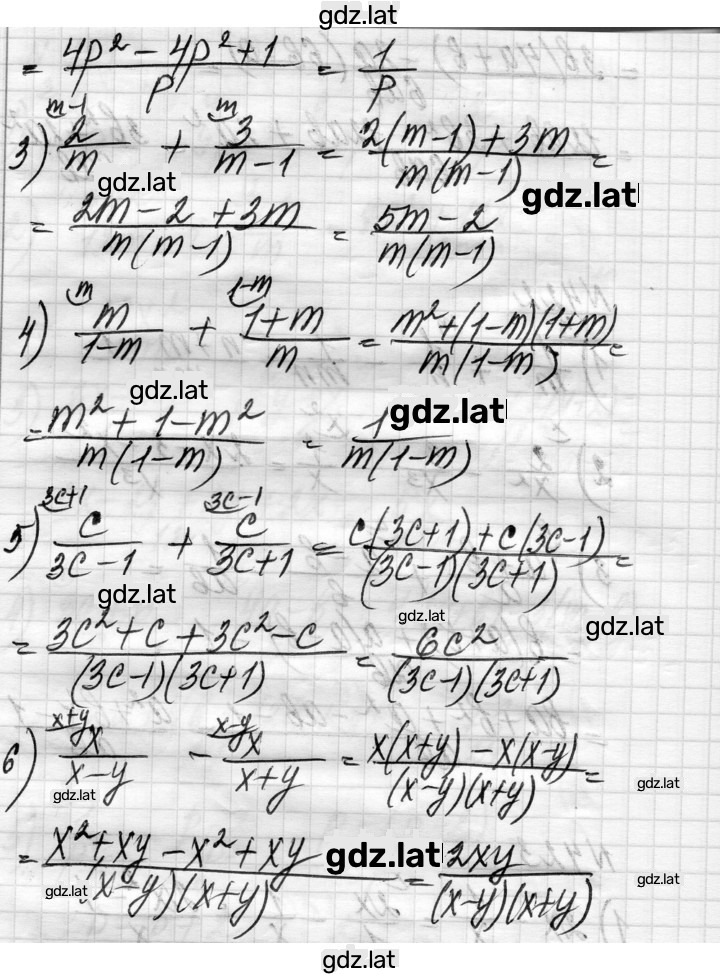 gdz.lat
= (4p² - 4p² + 1)/p = 1/p
3) 2/m (m-1) + 3/(m-1) (m) = (2(m-1) + 3m)/(m(m-1)) =
gdz.lat gdz.lat
= (2m - 2 + 3m)/(m(m-1)) = (5m - 2)/(m(m-1))
4) m/(1-m) (m) + (1+m)/m (1-m) = (m² + (1-m)(1+m))/(m(1-m)) =
gdz.lat gdz.lat
= (m² + 1 - m²)/(m(1-m)) = 1/(m(1-m))
5) c/(3c-1) (3c+1) + c/(3c+1) (3c-1) = (c(3c+1) + c(3c-1))/((3c-1)(3c+1)) =
gdz.lat gdz.lat gdz.lat
= (3c² + c + 3c² - c)/((3c-1)(3c+1)) = 6c²/((3c-1)(3c+1))
6) x/(x-y) (x+y) - x/(x+y) (x-y) = (x(x+y) - x(x-y))/((x-y)(x+y)) =
gdz.lat gdz.lat
= (x² + xy - x² + xy)/((x-y)(x+y)) = 2xy/((x-y)(x+y))
gdz.lat gdz.lat gdz.lat
gdz.lat